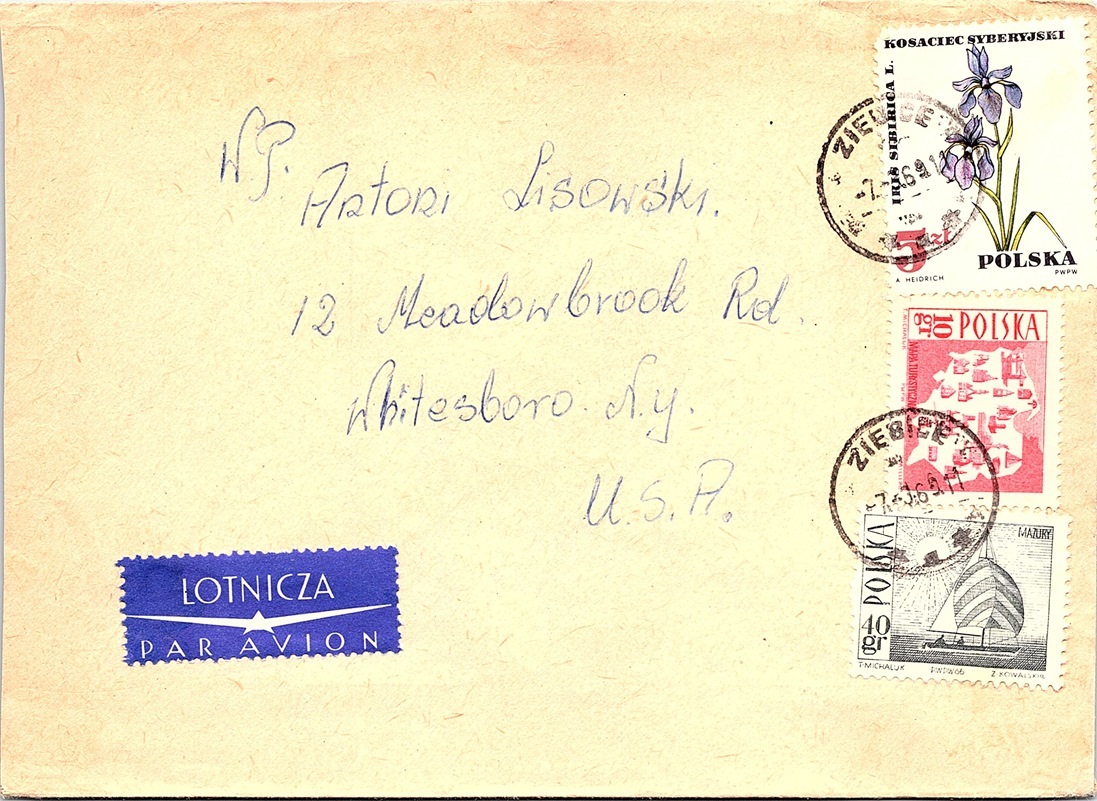 W.P.
Artori Lisowski.
12 Meadowbrook Rd.
Whitesboro. N.y.
U.S.A.
LOTNICZA
PAR AVION
KOSACIEC SYBERYJSKI
IRIS SIBIRICA L.
5 zł
POLSKA
A HEIDRICH
PWPW
10 gr
POLSKA
MAPA TURYSTYCZNA
T. MICHALUK
ZIEBICE
ZIEBICE
POLSKA
MAZURY
40 gr
T·MICHALUK
PWPW 66
Z·KOWALSKI R.